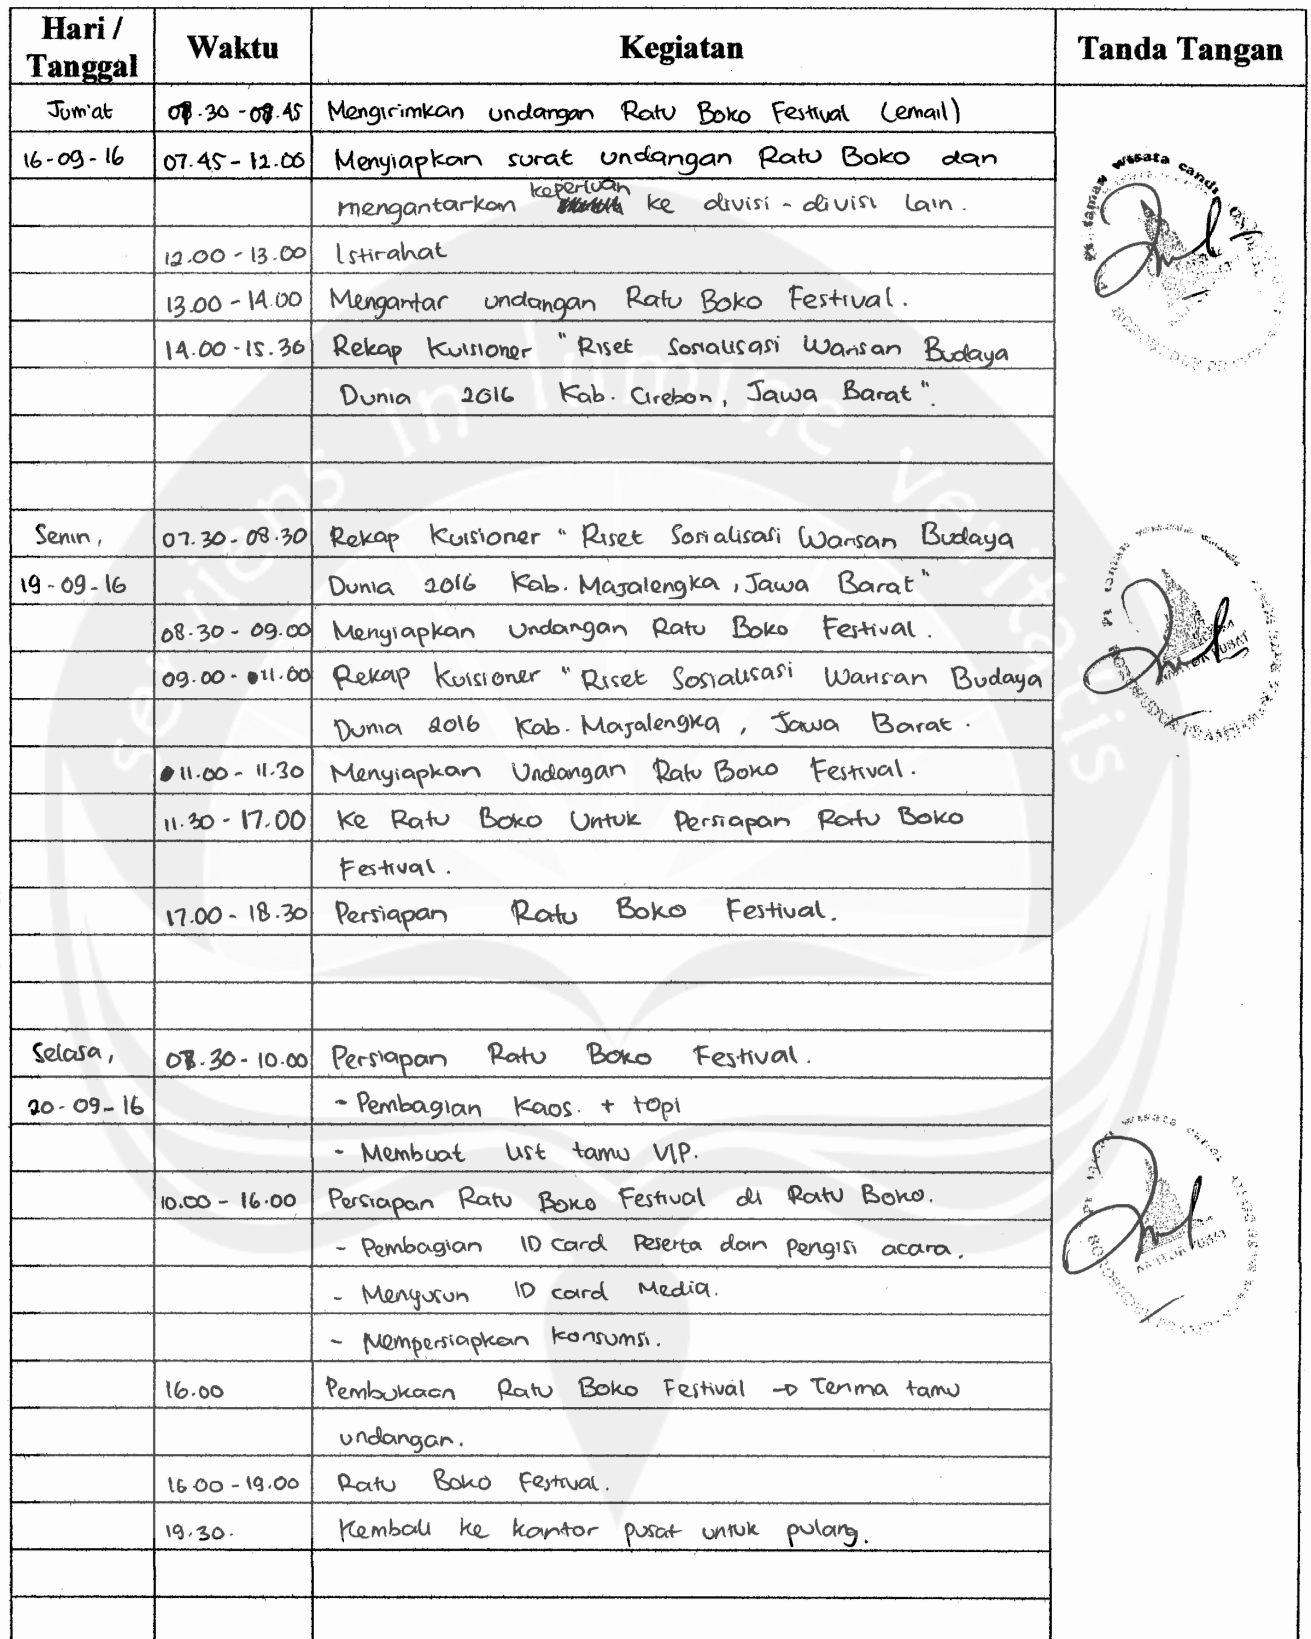 Hari / Tanggal Waktu Kegiatan Tanda Tangan
Jum'at 07.30 - 07.45 Mengirimkan undangan Ratu Boko Festival (email)
16-09-16 07.45 - 12.00 Menyiapkan surat undangan Ratu Boko dan
keperluan
mengantarkan ke divisi - divisi lain.
12.00 - 13.00 Istirahat
13.00 - 14.00 Mengantar undangan Ratu Boko Festival.
14.00 - 15.30 Rekap Kuisioner "Riset Sosialisasi Warisan Budaya
Dunia 2016 Kab. Cirebon, Jawa Barat".
Senin, 07.30 - 08.30 Rekap Kuisioner "Riset Sosialisasi Warisan Budaya
19-09-16 Dunia 2016 Kab. Majalengka, Jawa Barat"
08.30 - 09.00 Menyiapkan Undangan Ratu Boko Festival.
09.00 - 11.00 Rekap Kuisioner "Riset Sosialisasi Warisan Budaya
Dunia 2016 Kab. Majalengka, Jawa Barat.
11.00 - 11.30 Menyiapkan Undangan Ratu Boko Festival.
11.30 - 17.00 Ke Ratu Boko Untuk Persiapan Ratu Boko
Festival.
17.00 - 18.30 Persiapan Ratu Boko Festival.
Selasa, 07.30 - 10.00 Persiapan Ratu Boko Festival.
20-09-16 - Pembagian Kaos. + topi
- Membuat list tamu VIP.
10.00 - 16.00 Persiapan Ratu Boko Festival di Ratu Boko.
- Pembagian ID card Peserta dan pengisi acara.
- Menyusun ID card Media.
- Mempersiapkan konsumsi.
16.00 Pembukaan Ratu Boko Festival → Terima tamu
undangan.
16.00 - 19.00 Ratu Boko Festival.
19.30. Kembali ke kantor pusat untuk pulang.
serviens in lumine veritatis